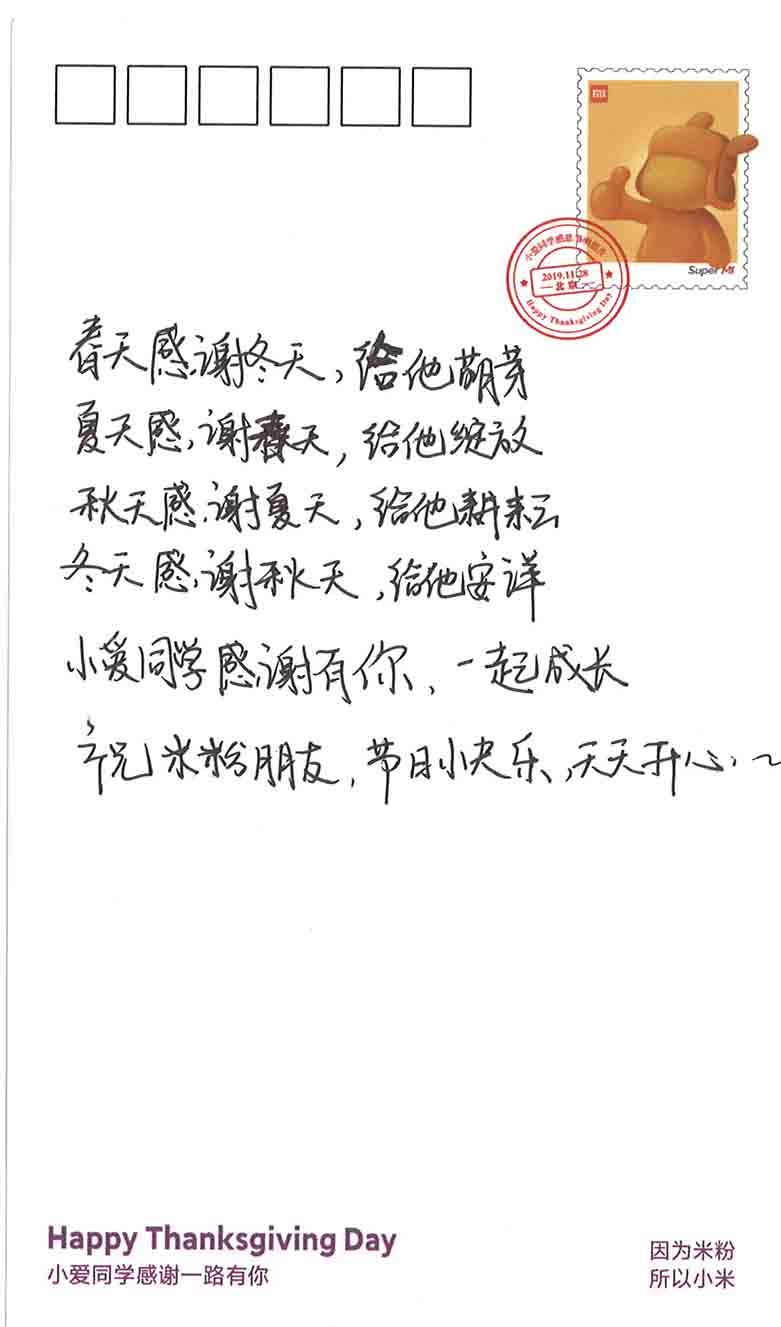 MI
Super MI
小爱同学感恩节明信片
2019.11.28
北京
Happy Thanksgiving Day
春天感谢冬天，给他萌芽
夏天感谢春天，给他绽放
秋天感谢夏天，给他耕耘
冬天感谢秋天，给他安详
小爱同学感谢有你，一起成长
祝米粉朋友，节日快乐，天天开心.~
Happy Thanksgiving Day
小爱同学感谢一路有你
因为米粉
所以小米